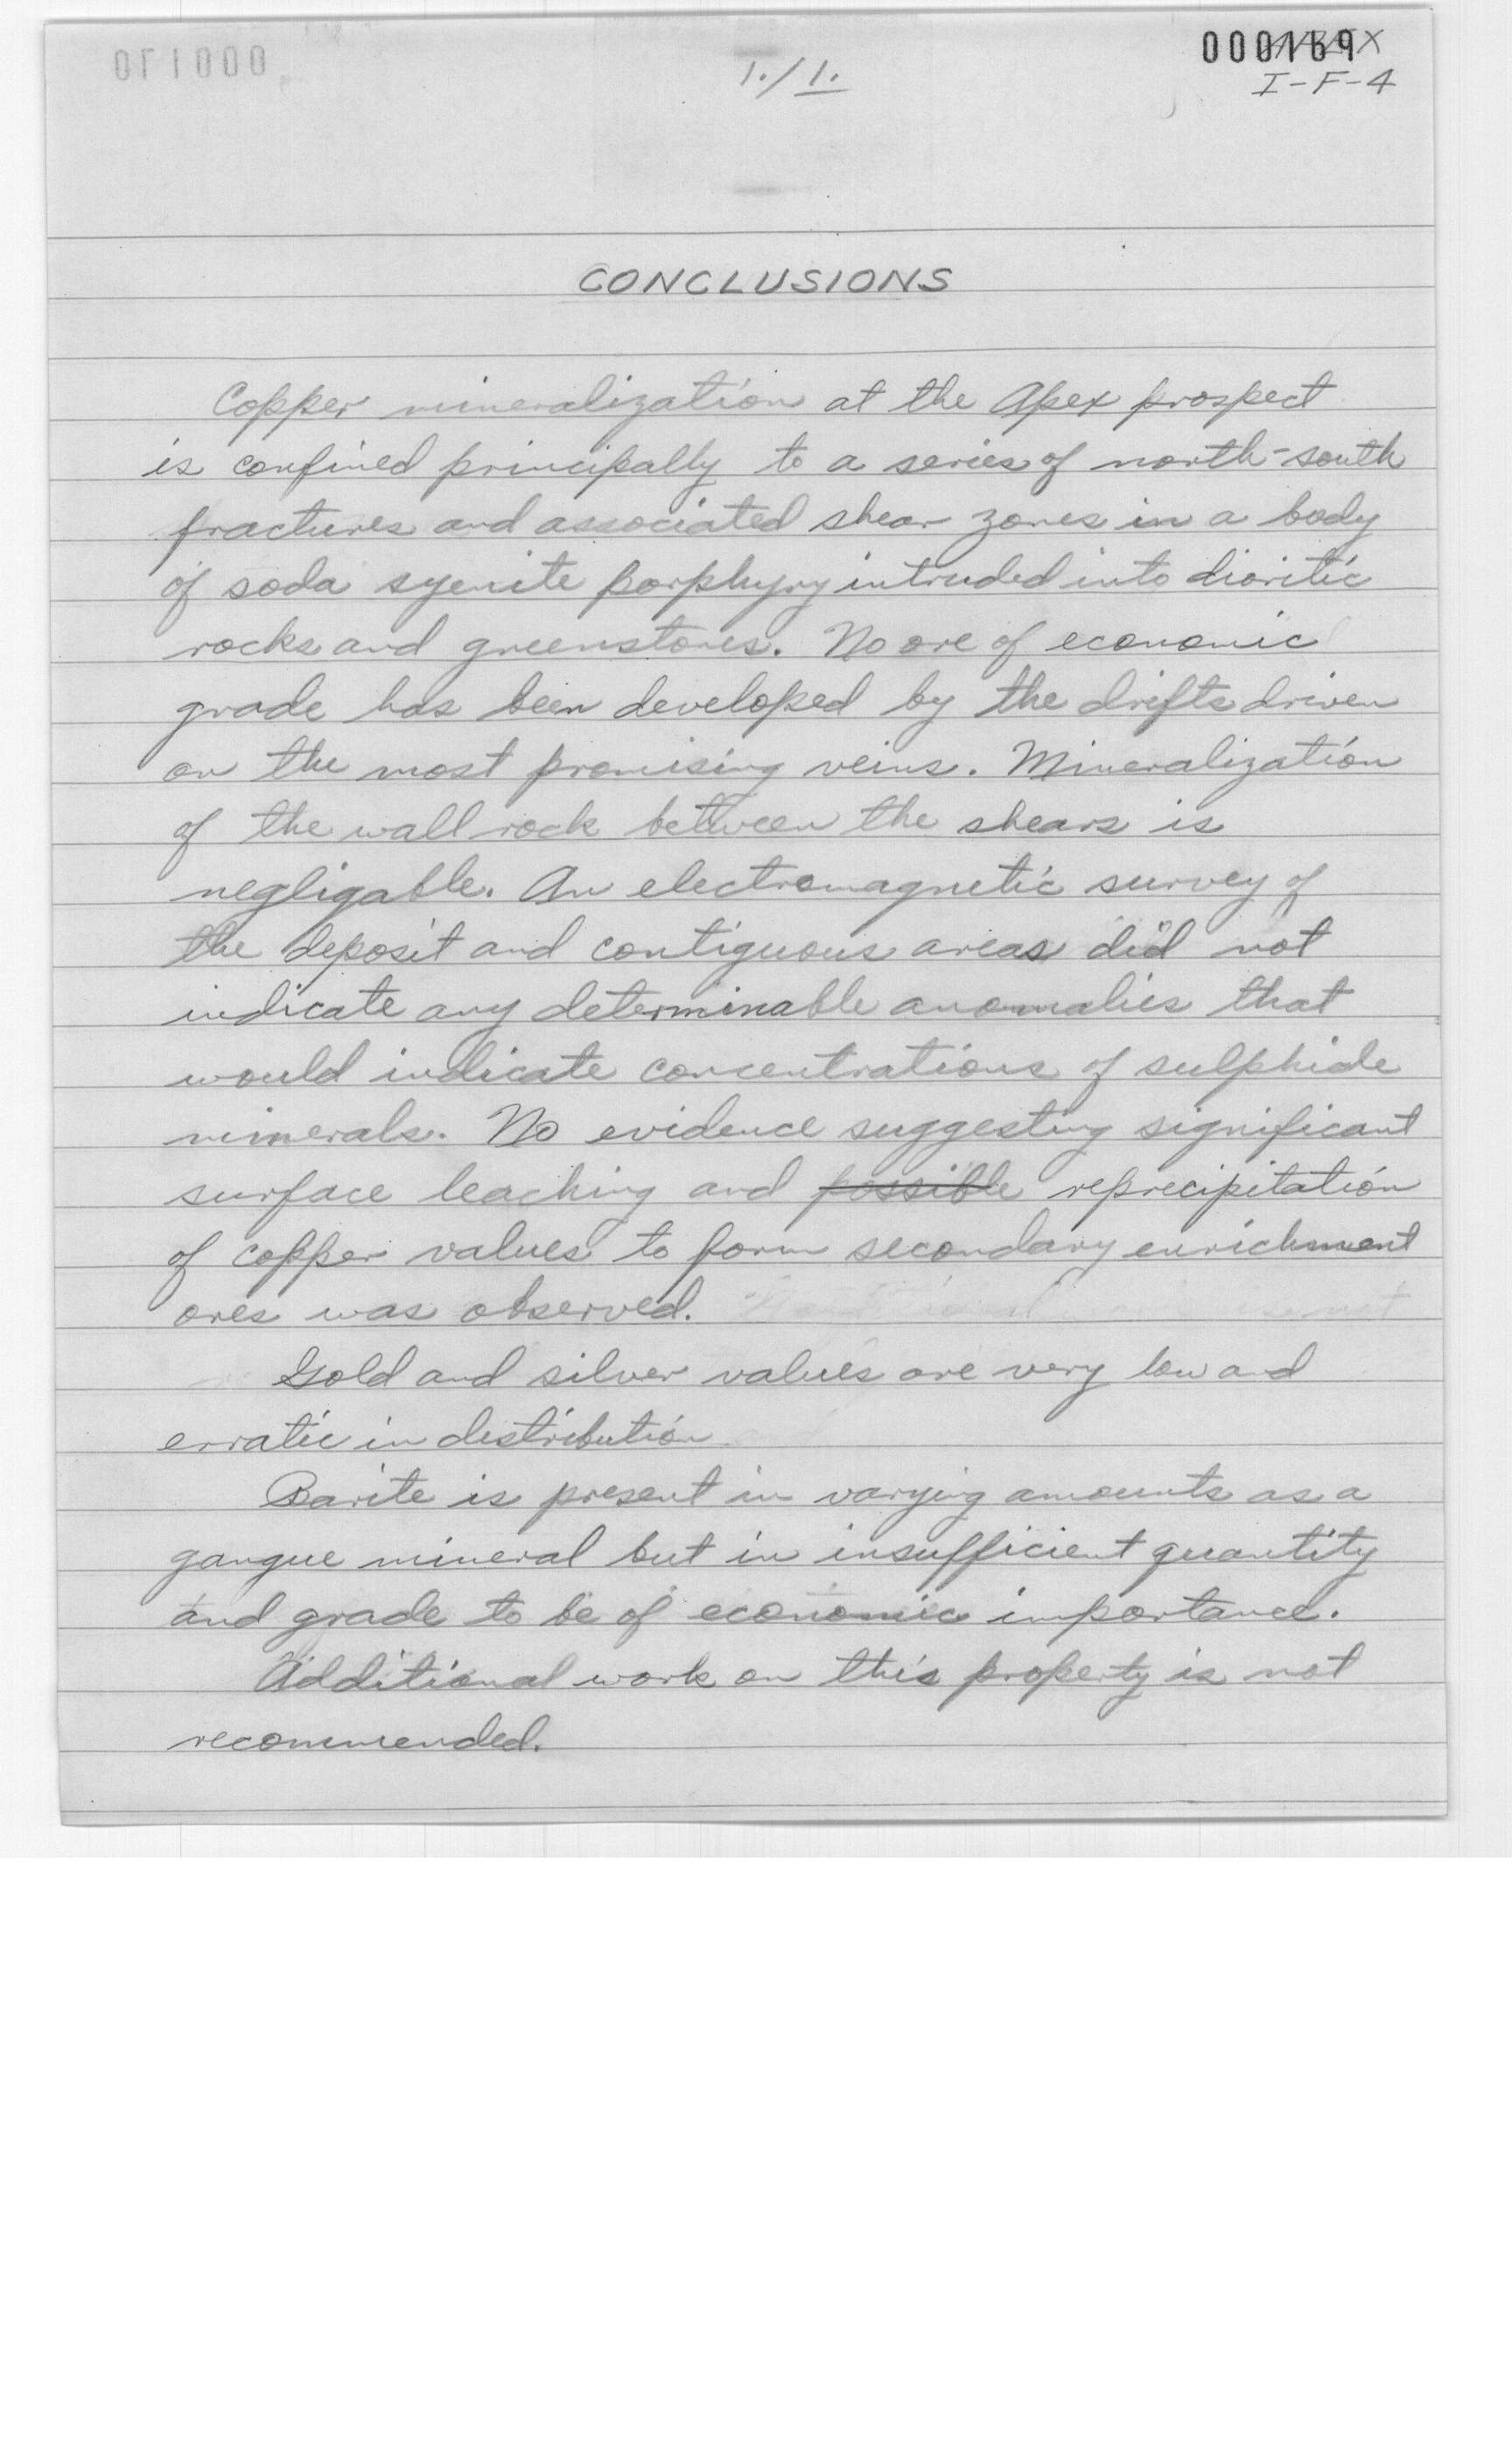 000169
I-F-4
1./1.
CONCLUSIONS
Copper mineralization at the Apex prospect
is confined principally to a series of north-south
fractures and associated shear zones in a body
of soda syenite porphyry intruded into dioritic
rocks and greenstones. No ore of economic
grade has been developed by the drifts driven
on the most promising veins. Mineralization
of the wall rock between the shears is
negligable. An electromagnetic survey of
the deposit and contiguous areas did not
indicate any determinable anomalies that
would indicate concentrations of sulphide
minerals. No evidence suggesting significant
surface leaching and possible reprecipitation
of copper values to form secondary enrichment
ores was observed.
Gold and silver values are very low and
erratic in distribution
Barite is present in varying amounts as a
gangue mineral but in insufficient quantity
and grade to be of economic importance.
Additional work on this property is not
recommended.